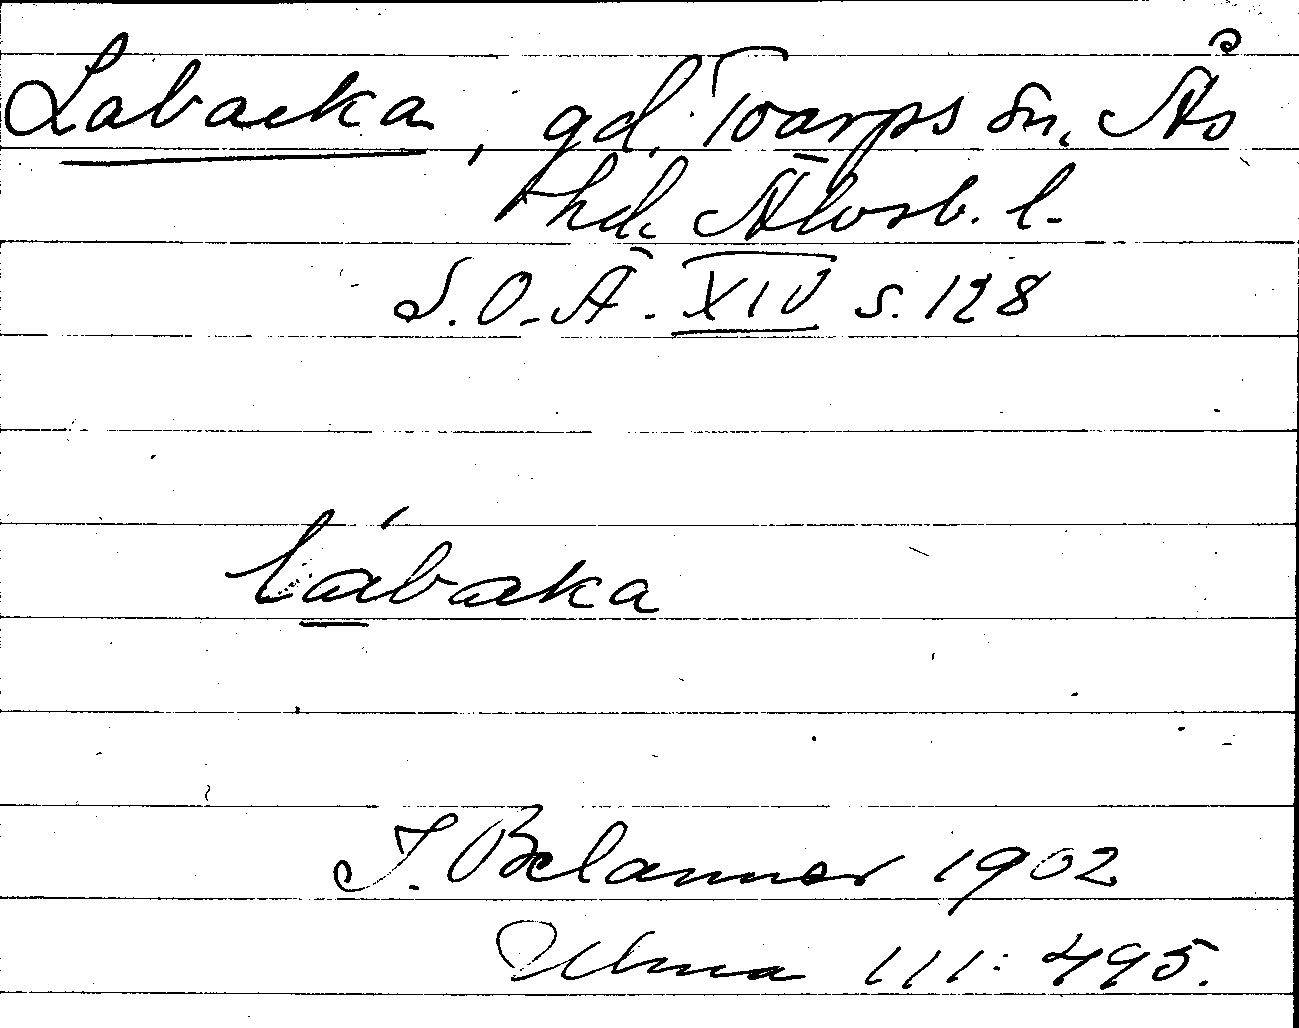 Labacka, gd. Toarps sn, Ås
hd. Älvsb. l.
S. O. Ä. XIV s. 128
lábaka
J. Belanner 1902
Ulma 111: 495.